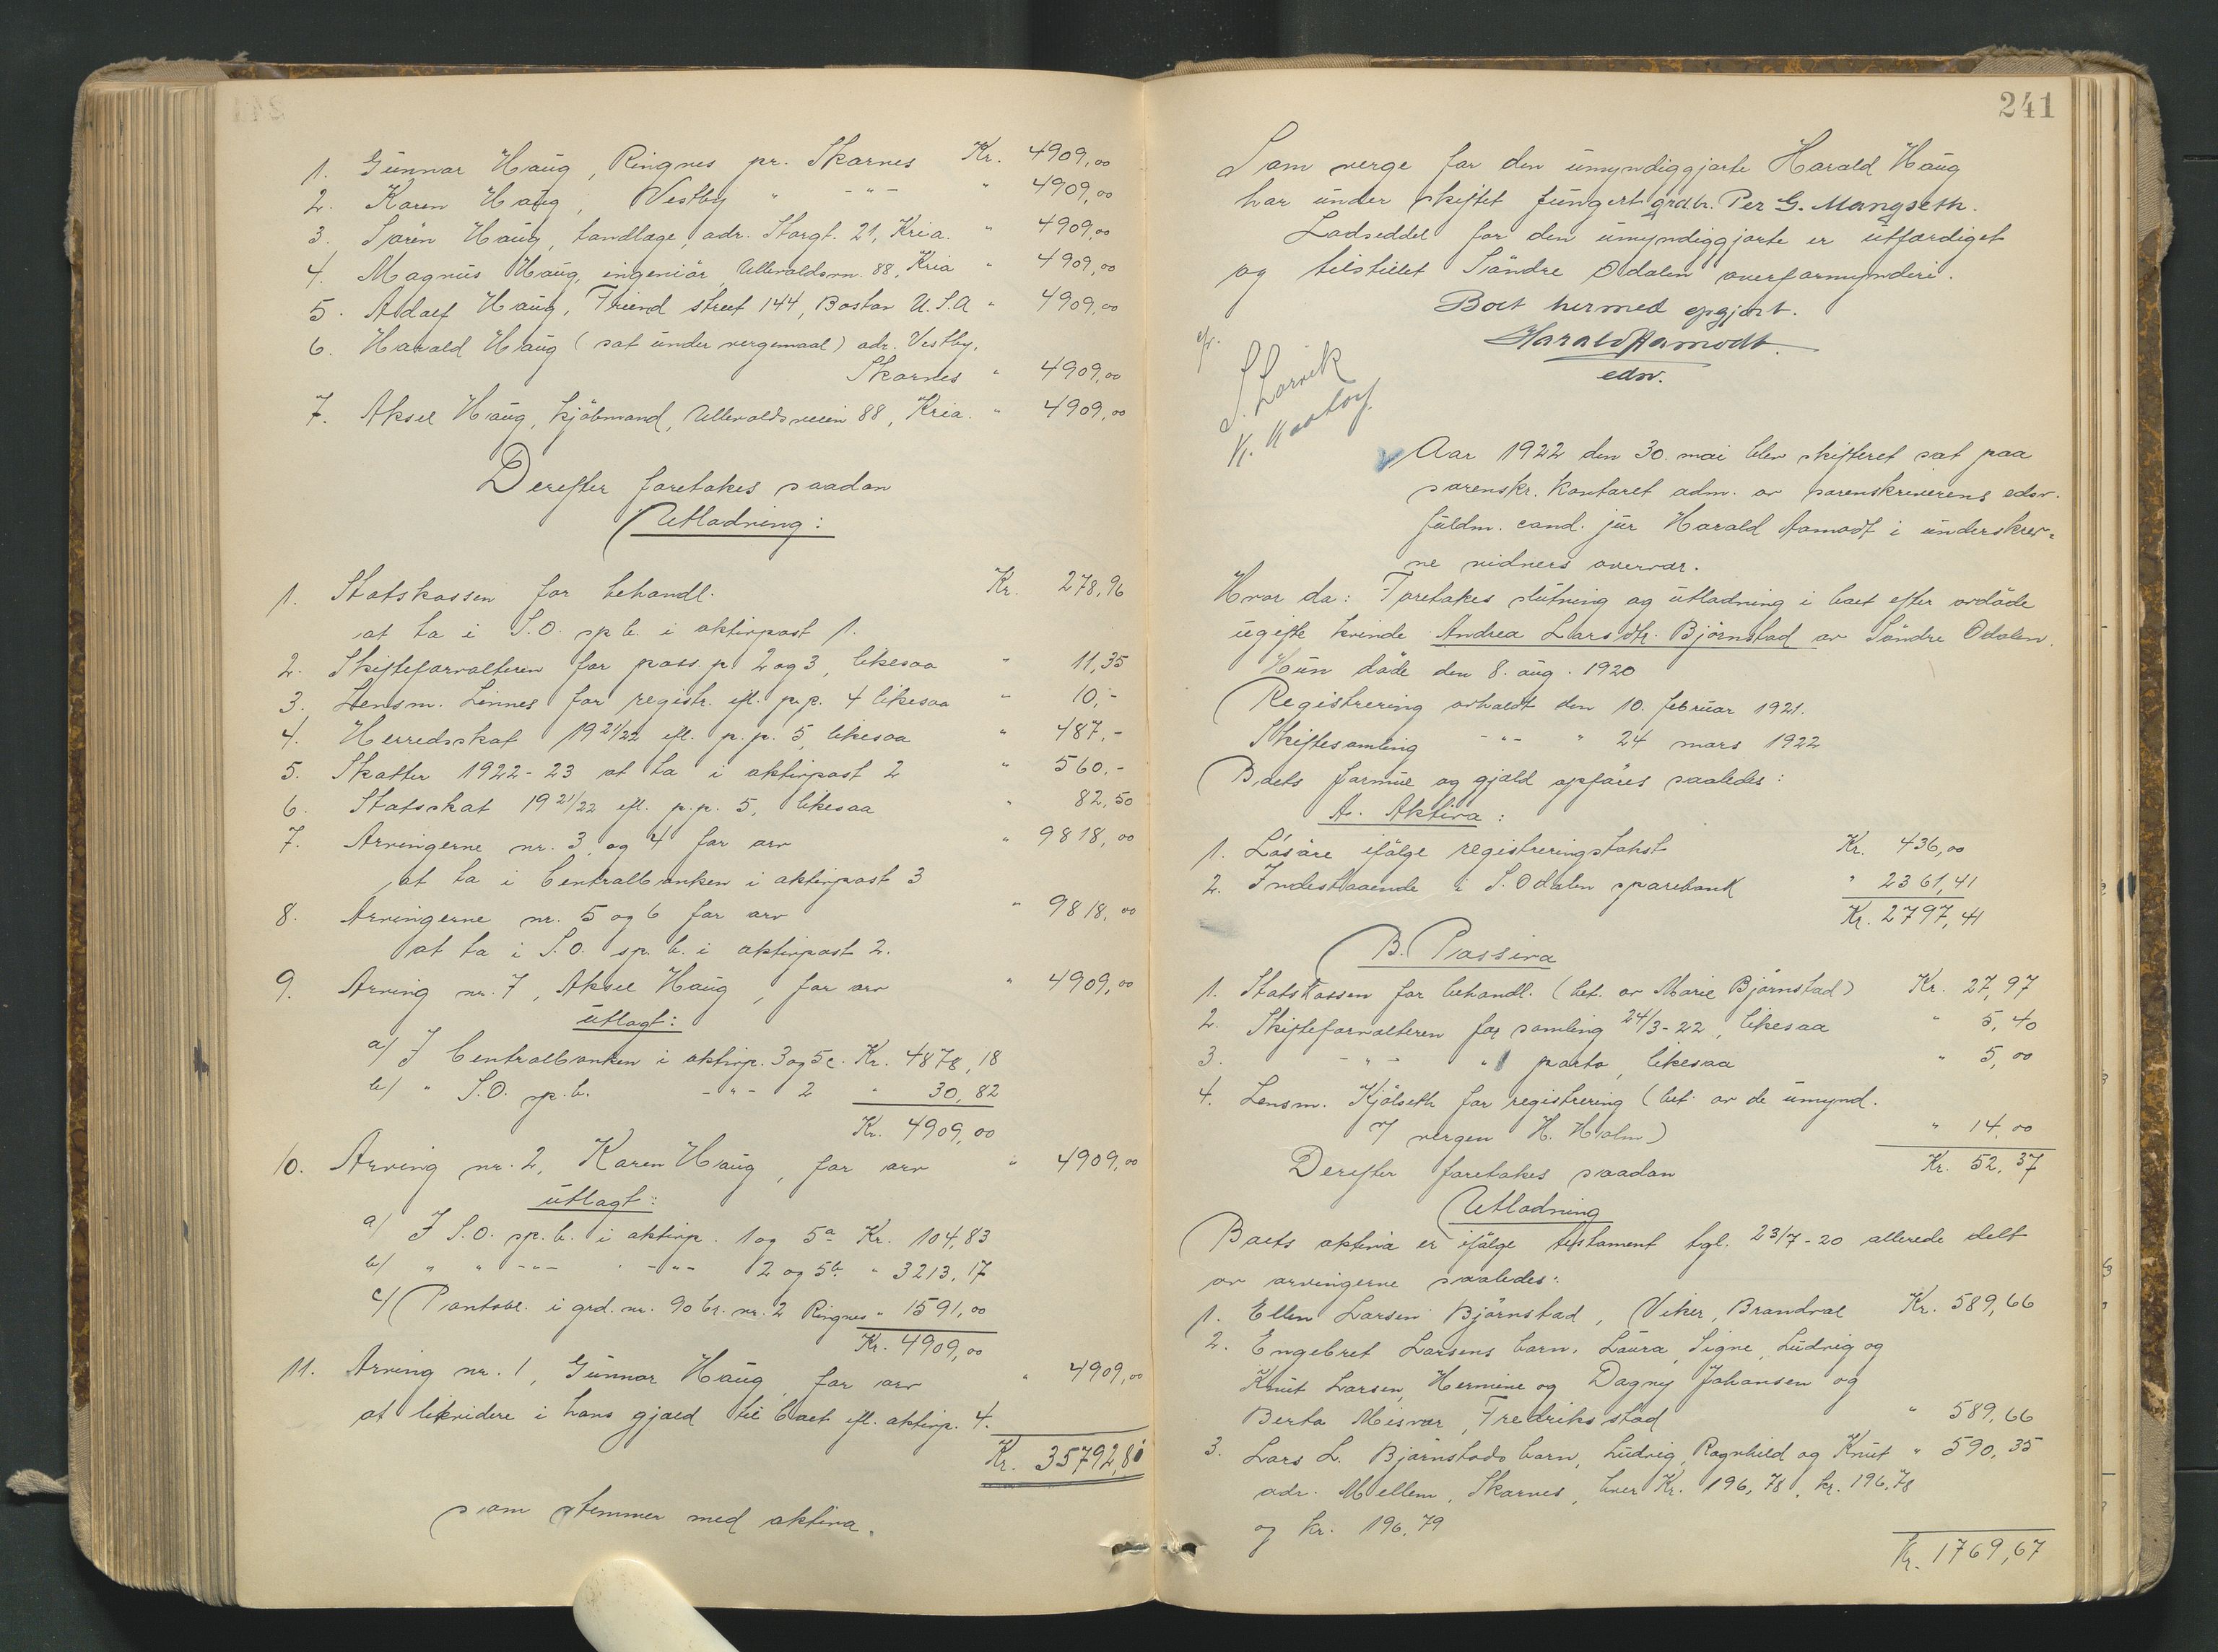 1. Gunnar Haug, Ringnes pr. Skarnes Kr. 4909,00
2. Karen Haug, Vestby " -"- " 4909,00
3. Sören Haug, tandlæge, adr. Storgt. 21, Kria. " 4909,00
4. Magnus Haug, ingeniör, Ullevoldsvn. 88, Kria " 4909,00
5. Adolf Haug, Friend street 144, Boston U.S.A " 4909,00
6. Harald Haug (sat under vergemaal) adr. Vestby,
Skarnes " 4909,00
7. Aksel Haug, kjöbmand, Ullevoldsveien 88, Kria. " 4909,00
Derefter foretokes saadan
Utlodning:
1. Statskassen for behandl. Kr. 278,96
at ta i S.O. sp.b. i aktivpost 1.
2. Skifteforvalteren for pass. p. 2 og 3, likesaa " 11,35
3. Lensm. Linnes for registr. efl. p.p. 4 likesaa " 10,-
4. Herredsskat 1921/22 efl. p.p. 5, likesaa " 487,-
5. Skatter 1922-23 at ta i aktivpost 2 " 560.-
6. Statsskat 1921/22 efl. p.p. 5, likesaa " 82,50
7. Arvingerne nr. 3 og 4 for arv " 9818,00
at ta i Centralbanken i aktivpost 3
8. Arvingerne nr. 5 og 6 for arv " 9818,00
at ta i S.O. sp.b. i aktivpost 2.
9. Arving nr. 7, Aksel Haug, for arv " 4909,00
utlagt:
a/ I Centralbanken i aktivp. 3 og 5c. Kr. 4878,18
b/ " S.O. sp.b. -"- 2 " 30,82
Kr. 4909,00
10. Arving nr. 2, Karen Haug, for arv " 4909,00
utlagt:
a/ I S.O. sp.b. i aktivp. 1 og 5a Kr. 104,83
b/ " " -"- " -"- 2 og 5b. " 3213,17
c/ Pantobl. i grd. nr. 90 br. nr. 2 Ringnes " 1591,00
Kr. 4909,00
11. Arving nr. 1, Gunnar Haug, for arv " 4909,00
at likvidere i hans gjæld til boet efl. aktivp. 4.
Kr. 35792,81
som stemmer med aktiva.
241
Som verge for den umyndiggjorte Harald Haug
har under skiftet fungert grdbr. Per G. Mangseth.
Lodseddel for den umyndiggjorte er utfærdiget
og tilstillet Söndre Odalen overformynderi.
Boet hermed opgjort.
Harald Aamodt
edsv.
S. Larvik
K. Kaatorp
Aar 1922 den 30. mai blev skifteret sat paa
sorenskr. kontoret adm. av sorenskriverens edsv.
fuldm. cand. jur Harald Aamodt i underskrev-
ne vidners overvær.
Hvor da: Foretokes slutning og utlodning i boet efter avdöde
ugifte kvinde Andrea Larsdtr. Björnstad av Söndre Odalen.
Hun döde den 8. aug. 1920
Registrering avholdt den 10. februar 1921.
Skiftesamling -"- " 24 mars 1922
Boets formue og gjæld opföres saaledes:
A. Aktiva:
1. Lösöre ifölge registreringstakst Kr. 436,00
2. Indestaaende i S. Odalen sparebank " 2361,41
Kr. 2797,41
B. Passiva
1. Statskassen for behandl. (bet. av Marie Björnstad) Kr. 27,97
2. Skifteforvalteren for samling 24/3-22, likesaa " 5,40
3. -"- " porto, likesaa " 5,00
4. Lensm. Kjölseth for registrering (bet. av de umynd.
v/ vergen H. Holm) " 14,00
Kr. 52,37
Derefter foretokes saadan
Utlodning
Boets aktiva er ifölge testament tgl. 23/7-20 allerede delt
av arvingerne saaledes:
1. Ellen Larsen Björnstad, Viker, Brandval Kr. 589,66
2. Engebret Larsens barn, Laura, Signe, Ludvig og
Knut Larsen, Hermine og Dagny Johansen og
Berta Misvær, Fredriksstad " 589,66
3. Lars L. Björnstads barn, Ludvig, Ragnhild og Knut " 590,35
adr. Mellem, Skarnes, hver Kr. 196,78, kr. 196,78
og kr. 196,79
Kr. 1769,67